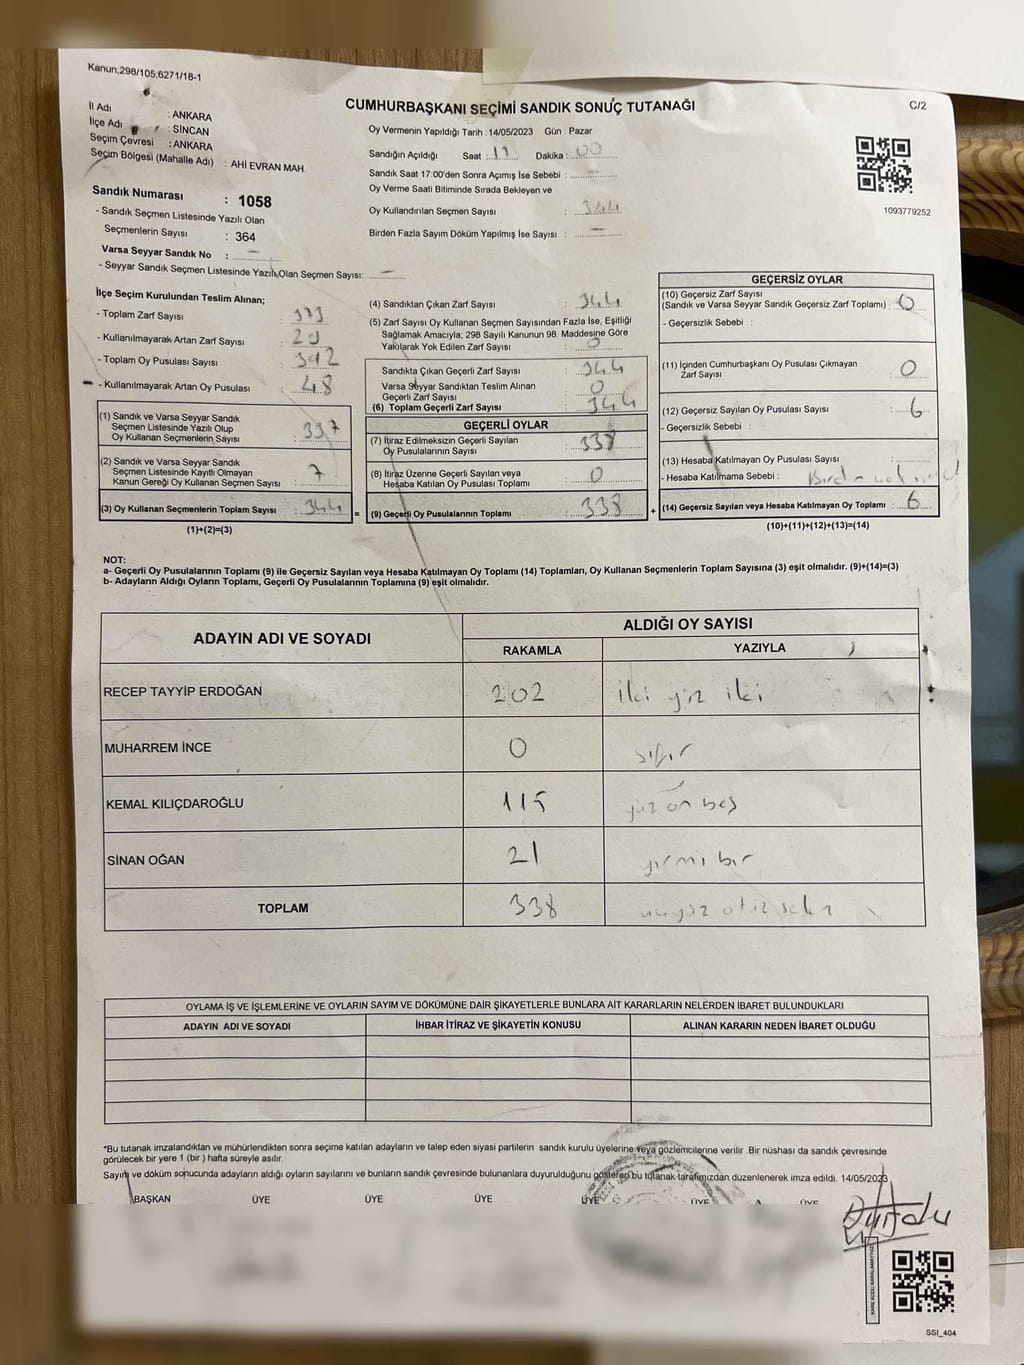 Kanun;298/105,6271/18-1
C/2
CUMHURBAŞKANI SEÇİMİ SANDIK SONUÇ TUTANAĞI
İl Adı : ANKARA
İlçe Adı : SİNCAN
Seçim Çevresi : ANKARA
Seçim Bölgesi (Mahalle Adı) : AHİ EVRAN MAH.
Sandık Numarası : 1058
- Sandık Seçmen Listesinde Yazılı Olan
Seçmenlerin Sayısı : 364
Varsa Seyyar Sandık No : —
- Seyyar Sandık Seçmen Listesinde Yazılı Olan Seçmen Sayısı: —
Oy Vermenin Yapıldığı Tarih : 14/05/2023 Gün : Pazar
Sandığın Açıldığı Saat : 17 Dakika : 00
Sandık Saat 17:00'den Sonra Açımış İse Sebebi : —
Oy Verme Saati Bitiminde Sırada Bekleyen ve
Oy Kullandırılan Seçmen Sayısı : 344
Birden Fazla Sayım Döküm Yapılmış İse Sayısı : —
1093779252
İlçe Seçim Kurulundan Teslim Alınan;
- Toplam Zarf Sayısı : 373
- Kullanılmayarak Artan Zarf Sayısı : 29
- Toplam Oy Pusulası Sayısı : 392
- Kullanılmayarak Artan Oy Pusulası : 48
(1) Sandık ve Varsa Seyyar Sandık
Seçmen Listesinde Yazılı Olup
Oy Kullanan Seçmenlerin Sayısı : 337
(2) Sandık ve Varsa Seyyar Sandık
Seçmen Listesinde Kayıtlı Olmayan
Kanun Gereği Oy Kullanan Seçmen Sayısı : 7
(3) Oy Kullanan Seçmenlerin Toplam Sayısı : 344 =
(1)+(2)=(3)
(4) Sandıktan Çıkan Zarf Sayısı : 344
(5) Zarf Sayısı Oy Kullanan Seçmen Sayısından Fazla İse, Eşitliği
Sağlamak Amacıyla; 298 Sayılı Kanunun 98. Maddesine Göre
Yakılarak Yok Edilen Zarf Sayısı : 0
Sandıkta Çıkan Geçerli Zarf Sayısı : 344
Varsa Seyyar Sandıktan Teslim Alınan
Geçerli Zarf Sayısı : 0
(6) Toplam Geçerli Zarf Sayısı : 344
GEÇERLİ OYLAR
(7) İtiraz Edilmeksizin Geçerli Sayılan
Oy Pusulalarının Sayısı : 338
(8) İtiraz Üzerine Geçerli Sayılan veya
Hesaba Katılan Oy Pusulası Toplamı : 0
(9) Geçerli Oy Pusulalarının Toplamı : 338 +
GEÇERSİZ OYLAR
(10) Geçersiz Zarf Sayısı
(Sandık ve Varsa Seyyar Sandık Geçersiz Zarf Toplamı) : 0
- Geçersizlik Sebebi :
(11) İçinden Cumhurbaşkanı Oy Pusulası Çıkmayan
Zarf Sayısı : 0
(12) Geçersiz Sayılan Oy Pusulası Sayısı : 6
- Geçersizlik Sebebi :
(13) Hesaba Katılmayan Oy Pusulası Sayısı :
- Hesaba Katılmama Sebebi :
(14) Geçersiz Sayılan veya Hesaba Katılmayan Oy Toplamı : 6
(10)+(11)+(12)+(13)=(14)
NOT:
a- Geçerli Oy Pusulalarının Toplamı (9) ile Geçersiz Sayılan veya Hesaba Katılmayan Oy Toplamı (14) Toplamları, Oy Kullanan Seçmenlerin Toplam Sayısına (3) eşit olmalıdır. (9)+(14)=(3)
b- Adayların Aldığı Oyların Toplamı, Geçerli Oy Pusulalarının Toplamına (9) eşit olmalıdır.
ADAYIN ADI VE SOYADI ALDIĞI OY SAYISI
RAKAMLA YAZIYLA
RECEP TAYYİP ERDOĞAN 202 iki yüz iki
MUHARREM İNCE 0 sıfır
KEMAL KILIÇDAROĞLU 115 yüz on beş
SİNAN OĞAN 21 yirmi bir
TOPLAM 338
OYLAMA İŞ VE İŞLEMLERİNE VE OYLARIN SAYIM VE DÖKÜMÜNE DAİR ŞİKAYETLERLE BUNLARA AİT KARARLARIN NELERDEN İBARET BULUNDUKLARI
ADAYIN ADI VE SOYADI İHBAR İTİRAZ VE ŞİKAYETİN KONUSU ALINAN KARARIN NEDEN İBARET OLDUĞU
*Bu tutanak imzalandıktan ve mühürlendikten sonra seçime katılan adayların ve talep eden siyasi partilerin sandık kurulu üyelerine veya gözlemcilerine verilir .Bir nüshası da sandık çevresinde
görülecek bir yere 1 (bir ) hafta süreyle asılır.
Sayım ve döküm sonucunda adayların aldığı oyların sayılarını ve bunların sandık çevresinde bulunanlara duyurulduğunu gösteren bu tutanak tarafımızdan düzenlenerek imza edildi. 14/05/2023
BAŞKAN ÜYE ÜYE ÜYE ÜYE ÜYE ÜYE
SSI_404